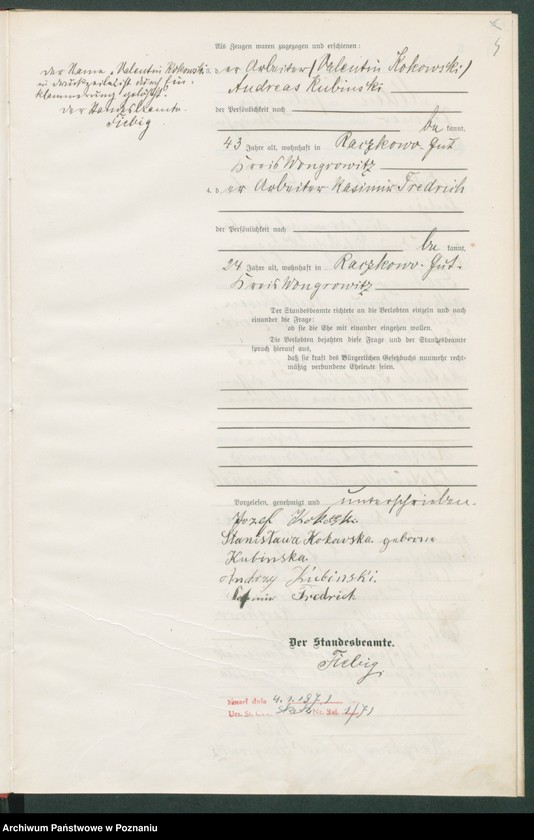 4
Der Name „Valentin Kokowski"
durch Ein-
klammerung gelöscht.
Der Standesbeamte.
Fiebig
Als Zeugen waren zugezogen und erschienen:
3. der Arbeiter (Valentin Kokowski)
Andreas Kubinski
der Persönlichkeit nach
be kannt,
43 Jahre alt, wohnhaft in Raczkowo-Gut
Kreis Wongrowitz
4. der Arbeiter Kasimir Fredrich
der Persönlichkeit nach
be kannt,
24 Jahre alt, wohnhaft in Raczkowo-Gut.
Kreis Wongrowitz
Der Standesbeamte richtete an die Verlobten einzeln und nach
einander die Frage:
ob sie die Ehe mit einander eingehen wollen.
Die Verlobten bejahten diese Frage und der Standesbeamte
sprach hierauf aus,
daß sie kraft des Bürgerlichen Gesetzbuchs nunmehr recht-
mäßig verbundene Eheleute seien.
Vorgelesen, genehmigt und unterschrieben.
Józef
Stanisława Kokavska geborene
Kubinska.
Andrzy Kubinski.
Fredrich
Der Standesbeamte.
Fiebig.
dnia 4.1.1971
1/71
Archiwum Państwowe w Poznaniu